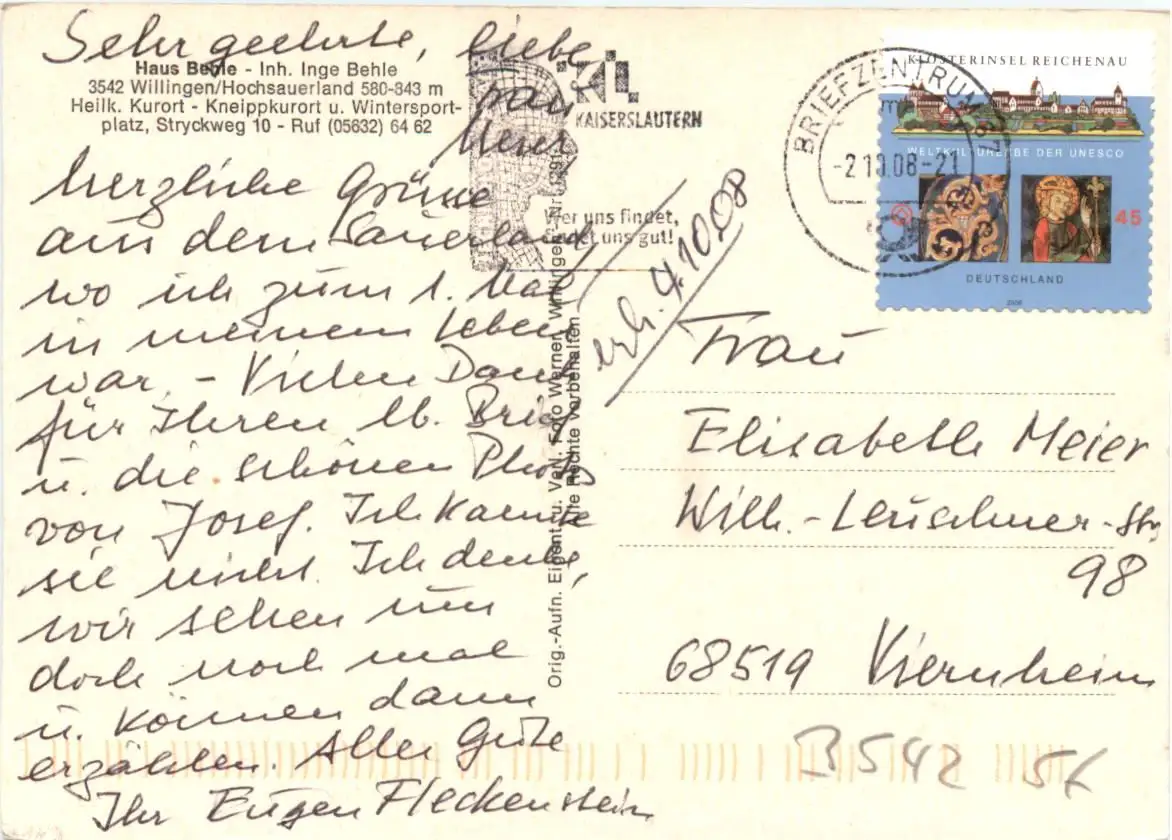 Sehr geehrte, liebe
Frau
Meier
Haus Behle - Inh. Inge Behle
3542 Willingen/Hochsauerland 580-843 m
Heilk. Kurort - Kneippkurort u. Wintersport-
platz, Stryckweg 10 - Ruf (05632) 64 62
herzliche Grüße
aus dem Sauerland
wo ich zum 1. Mal
in meinem Leben
war. - Vielen Dank
für Ihren lb. Brief
u. die schönen Photos
von Josef. Ich kannte
sie nicht. Ich denke,
wir sehen uns
doch noch mal
u. können dann
erzählen. Alles Gute
Ihr Eugen Fleckenstein
Orig.-Aufn. Eigent. u. Verl. Foto Werner, Willingen
Alle Rechte vorbehalten
KL
KAISERSLAUTERN
Wer uns findet,
findet uns gut!
erh. 4.10.08
BRIEFZENTRUM 67
-2.10.08-21
KLOSTERINSEL REICHENAU
WELTKULTURERBE DER UNESCO
45
DEUTSCHLAND
2008
Frau
Elisabeth Meier
Wilh.-Leuschner-Str
98
68519 Viernheim
3542 56